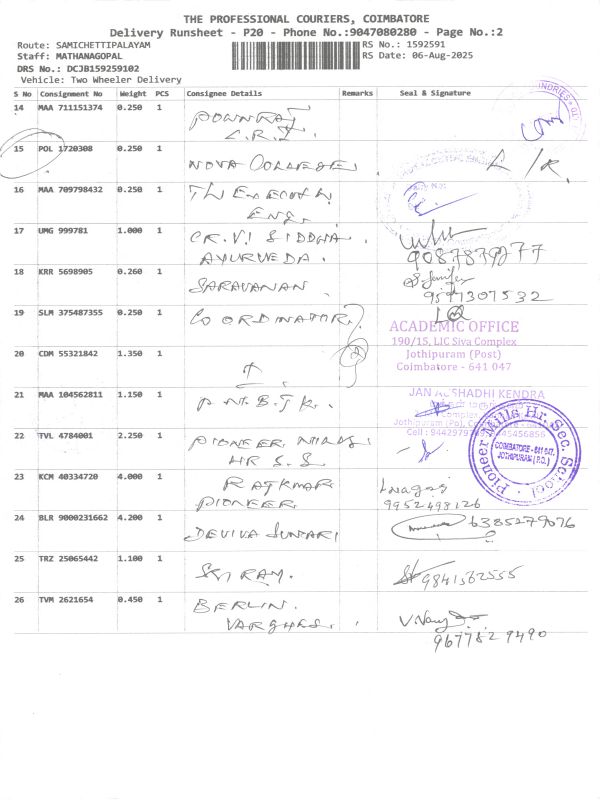 THE PROFESSIONAL COURIERS, COIMBATORE
Delivery Runsheet - P20 - Phone No.:9047080280 - Page No.:2
Route: SAMICHETTIPALAYAM RS No.: 1592591
Staff: MATHANAGOPAL RS Date: 06-Aug-2025
DRS No.: DCJB159259102
Vehicle: Two Wheeler Delivery
S No Consignment No Weight PCS Consignee Details Remarks Seal & Signature
14 MAA 711151374 0.250 1
C.R.I.
15 POL 1720308 0.250 1 NOVA COLLEGE
16 MAA 709798432 0.250 1
ENG.
17 UMG 999781 1.000 1 CR.V. SIDDHA
AYURVEDA. 9087879277
18 KRR 5698905 0.260 1 SARAVANAN
19 SLM 375487355 0.250 1 CO ORDINATOR
ACADEMIC OFFICE
190/15, LIC Siva Complex
Jothipuram (Post)
Coimbatore - 641 047
20 CDM 55321842 1.350 1
21 MAA 104562811 1.150 1
JAN AUSHADHI KENDRA
22 TVL 4784001 2.250 1 PIONEER MILLS
HR S.S.
Pioneer Mills Hr. Sec. School
COIMBATORE - 641 047.
JOTHIPURAM (P.O.)
23 KCM 40334720 4.000 1 RAJKMAR
PIONEER 9952498126
24 BLR 9000231662 4.200 1 DEVIVA SUNTARI 6385279076
25 TRZ 25065442 1.100 1 SRI RAM. 9841562555
26 TVM 2621654 0.450 1 BERLIN.
VARGHES. 9677829490